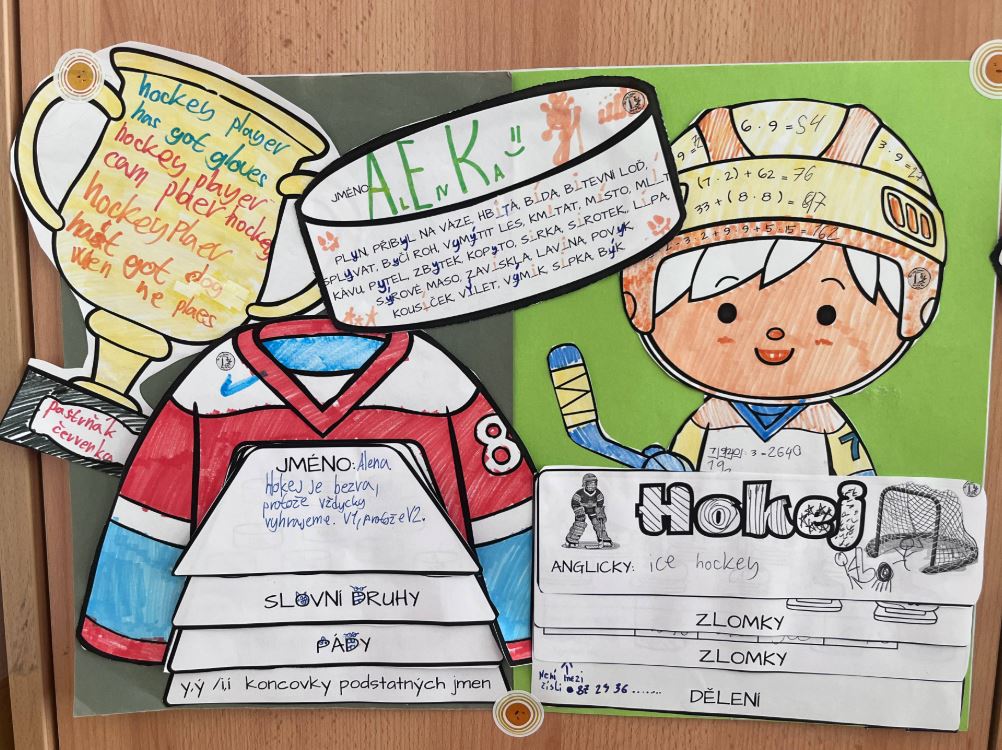 hockey player
has got gloves
hockey player
cam plaer hockey
hockey Plaer
hast got dog
wen ne plaes
pastrňák
červenka
JMÉNO ALENKA
PLYN, PŘIBYL NA VÁZE, HBITÁ, BÍDA, BITEVNÍ LOĎ,
SPLÝVAT, BYČÍ ROH, VYMÝTIT LES, KMITAT, MÍSTO, MLÍT
KÁVU, PYTEL, ZBYTEK, KOPYTO, SIRKA, SIROTEK, LÍPA,
SYROVÉ MASO, ZAVÍSKLA, LAVINA, POVYK,
KOUSÍČEK, VÝLET, VÝMIK, ŠIPKA, BÝK
6 · 9 = 54
3 · 9 = 27
(7 · 2) + 62 = 76
33 + (8 · 8) = 97
2 · 3 · 2 + 9 · 9 + 5 · 15 = 162
8
7
: 3 = 2640
19
JMÉNO: Alena
Hokej je bezva,
protože vždycky
vyhrajeme. V1, protože V2.
SLOVNÍ DRUHY
PÁDY
y,ý /i,í koncovky podstatných jmen
Hokej
ANGLICKY: ice hockey
ZLOMKY
ZLOMKY
Není mezi
čísli 87 29 36 .......
DĚLENÍ